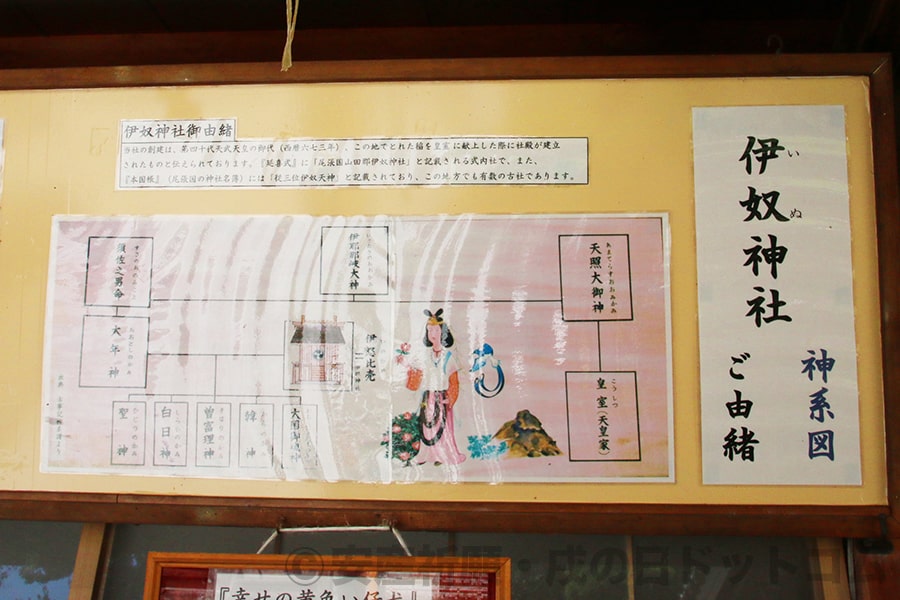 伊奴神社御由緒
当社の創建は、第四十代天武天皇の御代（西暦六七三年）、この地でとれた稲を皇室に献上した際に社殿が建立
されたものと伝えられております。『延喜式』に「尾張国山田郡伊奴神社」と記載される式内社で、また、
『本国帳』（尾張国の神社名簿）には「従三位伊奴天神」と記載されており、この地方でも有数の古社であります。
伊奴神社
いぬ
神系図
ご由緒
天照大御神
あまてらすおおみかみ
皇室（天皇家）
こうしつ
伊耶那岐大神
須佐之男命
すさのおのみこと
大年神
おおとしのかみ
伊怒比売
伊奴神社
大国御魂神
韓神
曽富理神
白日神
聖神
『幸せの黄色い仔犬』
© 安産祈願・戌の日ドットコム